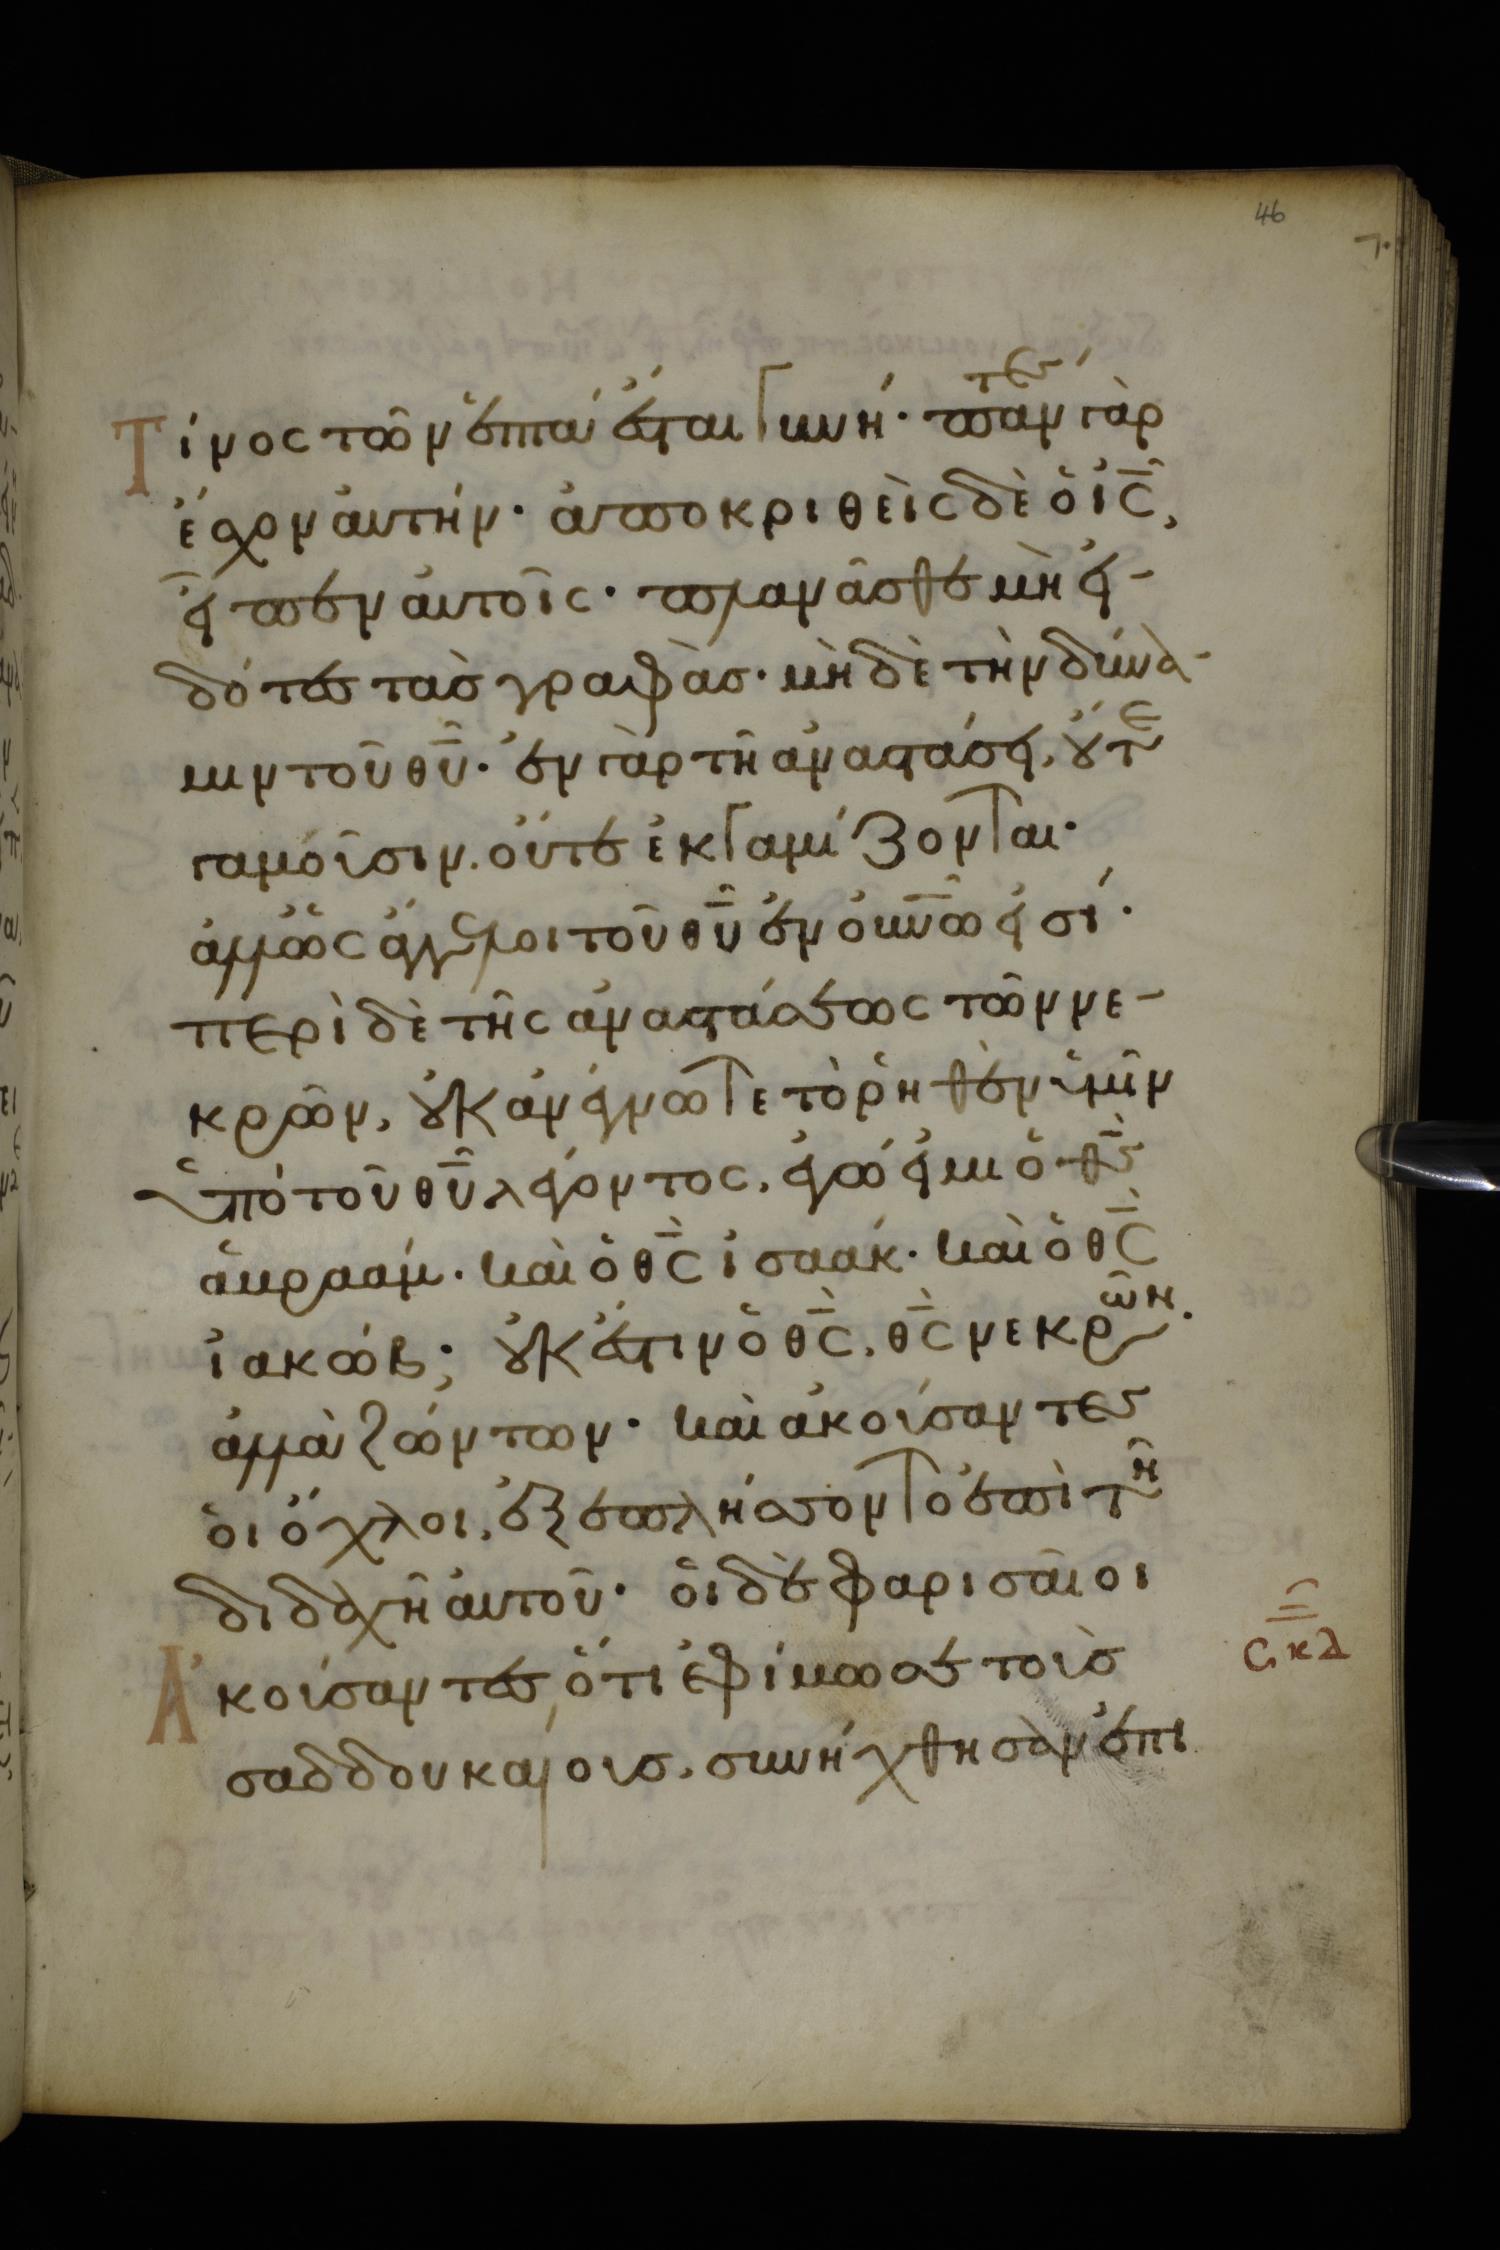 46
Τίνος τῶν ἑπτὰ ἔσται γυνή· πάντες γὰρ
ἔσχον αὐτήν· ἀποκριθεὶς δὲ ὁ ις̅,
εἶπεν αὐτοῖς· πλανᾶσθε μὴ εἰ-
δότες τὰς γραφὰς· μηδὲ τὴν δύνα-
μιν τοῦ θυ̅· ἐν γὰρ τῇ ἀναστάσει, οὔτε
γαμοῦσιν. οὔτε ἐκγαμίζονται·
ἀλλ' ὡς ἄγγελοι τοῦ θυ̅ ἐν οὐνω̅ εἰσί·
περὶ δὲ τῆς ἀναστάσεως τῶν νε-
κρῶν, οὐκ ἀνέγνωτε τὸ ῥηθὲν ὑμῖν
ὑπὸ τοῦ θυ̅ λέγοντος, ἐγώ εἰμι ὁ θς̅
ἀβραάμ· καὶ ὁ θς̅ ἰσαάκ· καὶ ὁ θς̅
ἰακώβ; οὐκ ἔστιν ὁ θς̅, θς̅ νεκρῶν·
ἀλλὰ ζώντων· καὶ ἀκούσαντες
οἱ ὄχλοι, ἐξεπλήσσοντο ἐπὶ τῇ
διδαχῇ αὐτοῦ· οἱ δὲ φαρισαῖοι
Ἀκούσαντες ὅτι ἐφίμωσε τοὺς
σαδδουκαίους, συνήχθησαν ἐπὶ